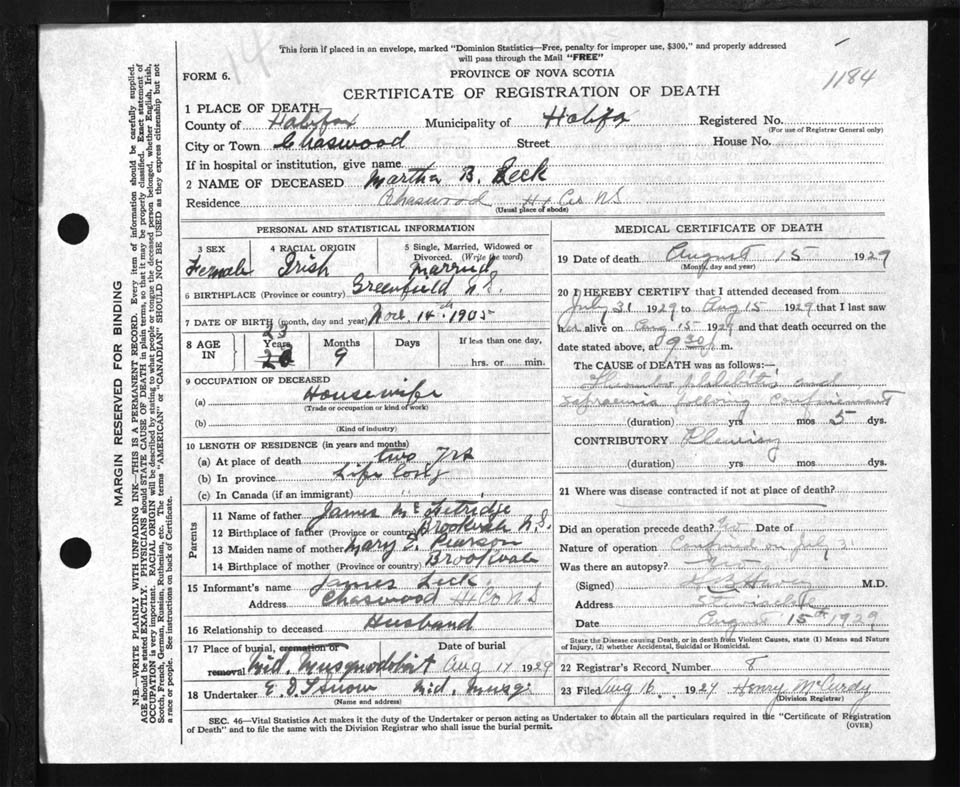 This form if placed in an envelope, marked "Dominion Statistics—Free, penalty for improper use, $300," and properly addressed
will pass through the Mail "FREE"
1184
FORM 6.
PROVINCE OF NOVA SCOTIA
CERTIFICATE OF REGISTRATION OF DEATH
1 PLACE OF DEATH
County of Halifax Municipality of Halifax Registered No.
(For use of Registrar General only)
City or Town Chaswood Street House No.
If in hospital or institution, give name
2 NAME OF DECEASED Martha B. Leck
Residence Chaswood Hx Co NS
(Usual place of abode)
PERSONAL AND STATISTICAL INFORMATION
3 SEX 4 RACIAL ORIGIN 5 Single, Married, Widowed or
Divorced. (Write the word)
Female Irish Married
6 BIRTHPLACE (Province or country) Greenfield N.S.
7 DATE OF BIRTH (month, day and year) Nov. 14th 1905
8 AGE IN
23
Years Months Days If less than one day,
9 hrs. or min.
9 OCCUPATION OF DECEASED
(a) Housewife
(Trade or occupation or kind of work)
(b)
(Kind of industry)
10 LENGTH OF RESIDENCE (in years and months)
(a) At place of death two yrs
(b) In province Life long
(c) In Canada (if an immigrant) " "
Parents
11 Name of father James McFetridge
12 Birthplace of father (Province or country) Brookvale N.S.
13 Maiden name of mother Mary E. Pearson
14 Birthplace of mother (Province or country) Brookvale
15 Informant's name James Leck
Address Chaswood Hx Co NS
16 Relationship to deceased Husband
17 Place of burial, cremation or removal Date of burial
Mid. Musquodoboit Aug 17 1929
18 Undertaker Mid. Musq.
(Name and address)
MEDICAL CERTIFICATE OF DEATH
19 Date of death August 15 1929
(Month, day and year)
20 I HEREBY CERTIFY that I attended deceased from
July 31 1929 to Aug 15 1929 that I last saw
her alive on Aug 15 1929 and that death occurred on
date stated above, at 9 30 P m.
The CAUSE OF DEATH was as follows:—
Thrombo phlebitis and
Sapraemia following confinement
(duration) yrs mos 5 dys.
CONTRIBUTORY Pleurisy
(duration) yrs mos dys.
21 Where was disease contracted if not at place of death?
Did an operation precede death? No Date of
Nature of operation Confined on July 31
Was there an autopsy? No
(Signed) M.D.
Address Stewiacke
Date August 15th 1929
State the Disease causing Death, or in death from Violent Causes, state (1) Means and Nature
of Injury, (2) whether Accidental, Suicidal or Homicidal.
22 Registrar's Record Number
23 Filed Aug 16 1929 Henry McCurdy
(Division Registrar)
SEC. 46—Vital Statistics Act makes it the duty of the Undertaker or person acting as Undertaker to obtain all the particulars required in the "Certificate of Registration
of Death" and to file the same with the Division Registrar who shall issue the burial permit.
(OVER)
MARGIN RESERVED FOR BINDING
N.B.—WRITE PLAINLY WITH UNFADING INK—THIS IS A PERMANENT RECORD. Every item of information should be carefully supplied.
AGE should be stated EXACTLY. PHYSICIANS should STATE CAUSE OF DEATH in plain terms, so that it may be properly classified. Exact statement of
OCCUPATION is very important. RACIAL ORIGIN will be described by stating to what people or tongue the deceased person belonged, whether English, Irish,
Scotch, French, German, Russian, Ruthenian, etc. The terms "AMERICAN" or "CANADIAN" SHOULD NOT BE USED as they express citizenship but not
a race or people. See instructions on back of Certificate.